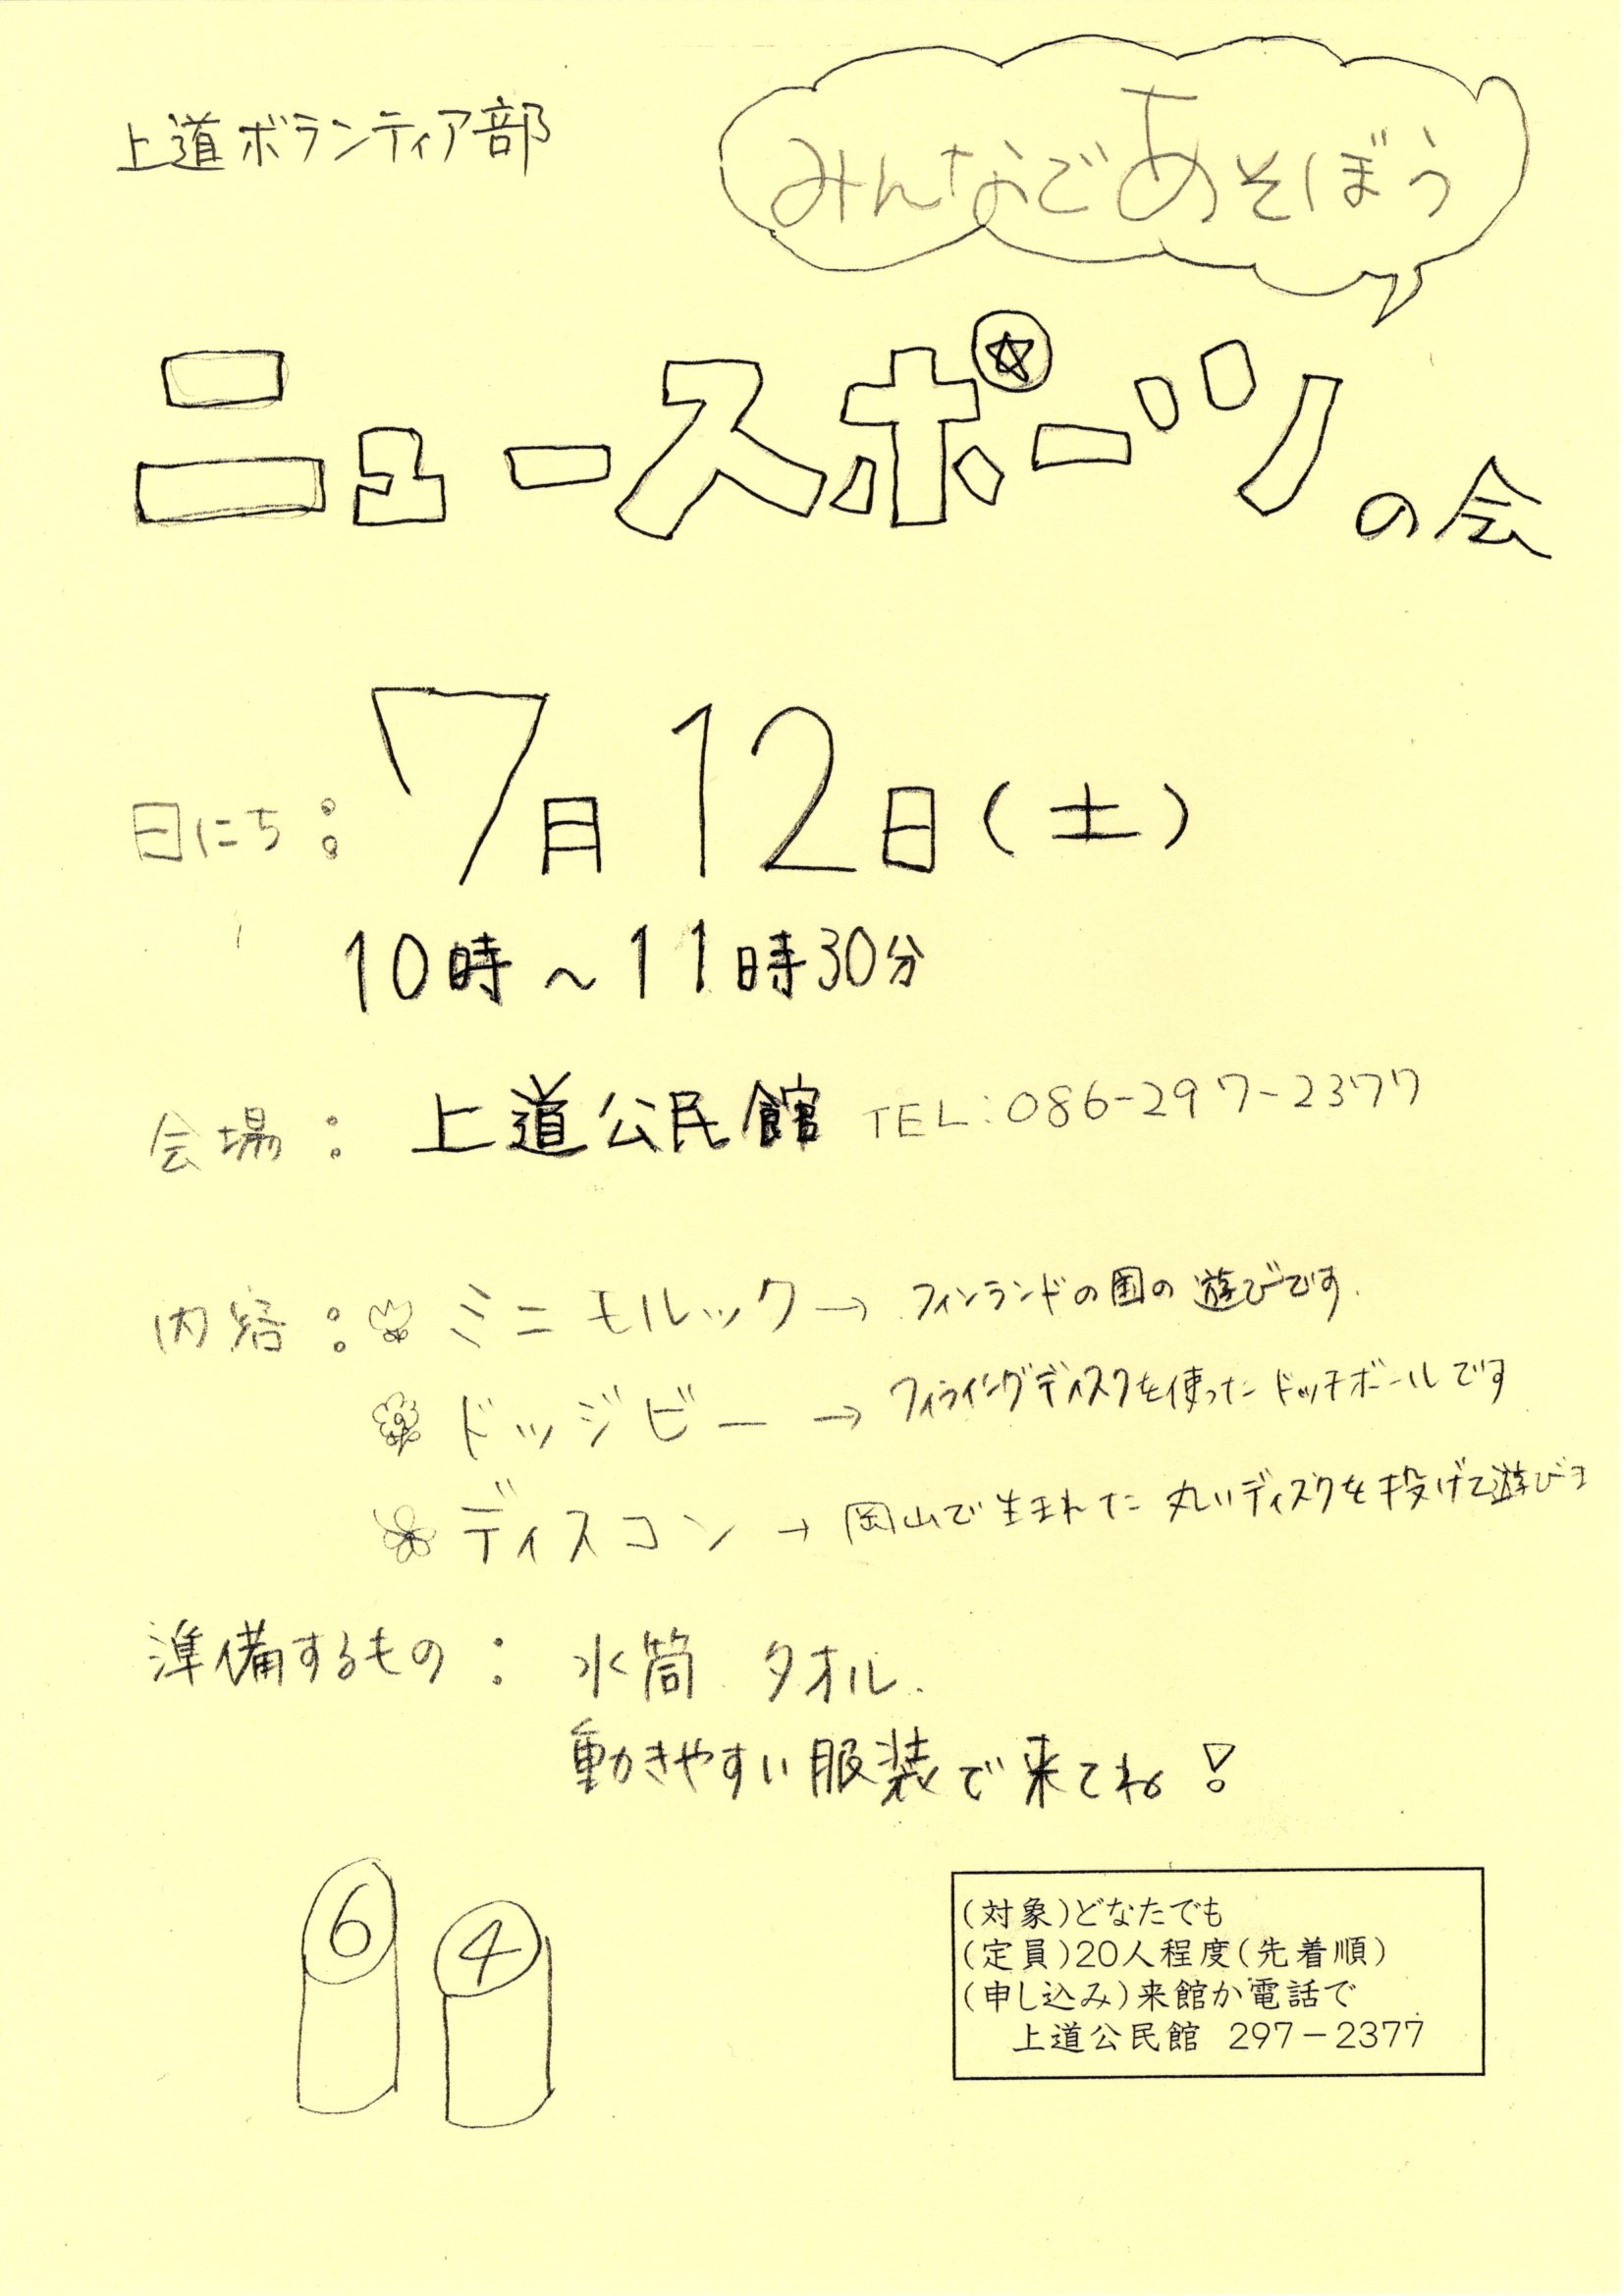 上道ボランティア部
みんなであそぼう
ニュースポーツの会
日にち：7月12日（土）
10時～11時30分
会場：上道公民館 TEL:086-297-2377
内容：ミニモルック→フィンランドの国の遊びです.
ドッジビー→フライングディスクを使ったドッチボールです
ディスコン→岡山で生まれた丸いディスクを投げて遊びま
準備するもの：水筒 タオル.
動きやすい服装で来てね！
6 4
(対象)どなたでも
(定員)20人程度(先着順)
(申し込み)来館か電話で
上道公民館 297－2377